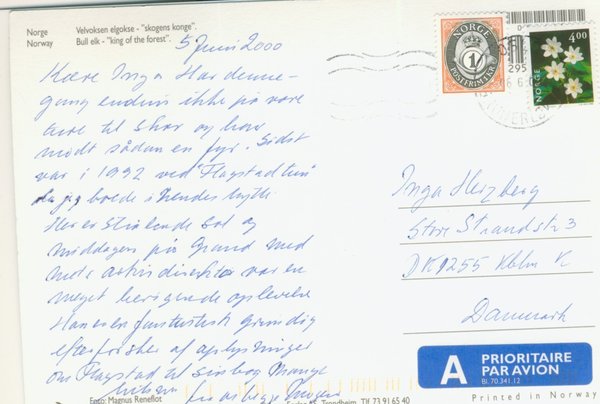 Norge Velvoksen elgokse - "skogens konge".
Norway Bull elk - "king of the forest".
5 Juni 2000
Kære Inga Har denne
gang endnu ikke på vore
ture til skov og hav
mødt sådan en fyr. Sidst
var i 1992 ved "Flagstadtun"
da jeg boede i hendes hytte
Her er strålende sol og
middagen på Grand med
direktør var en
meget berigende oplevelse
Han er en fantastisk grundig
efterforsker af oplysninger
om Flagstad til sin bog Mange
hilsner
NORGE
1
POSTFRIMERKE
295
NORGE
4.00
Inga Herzberg
Store Strandstr 3
DK 1255 Kbhn K
Danmark
A PRIORITAIRE
PAR AVION
BL.70.341.12
Printed in Norway
Foto: Magnus Reneflot
Trondheim Tlf 73 91 65 40